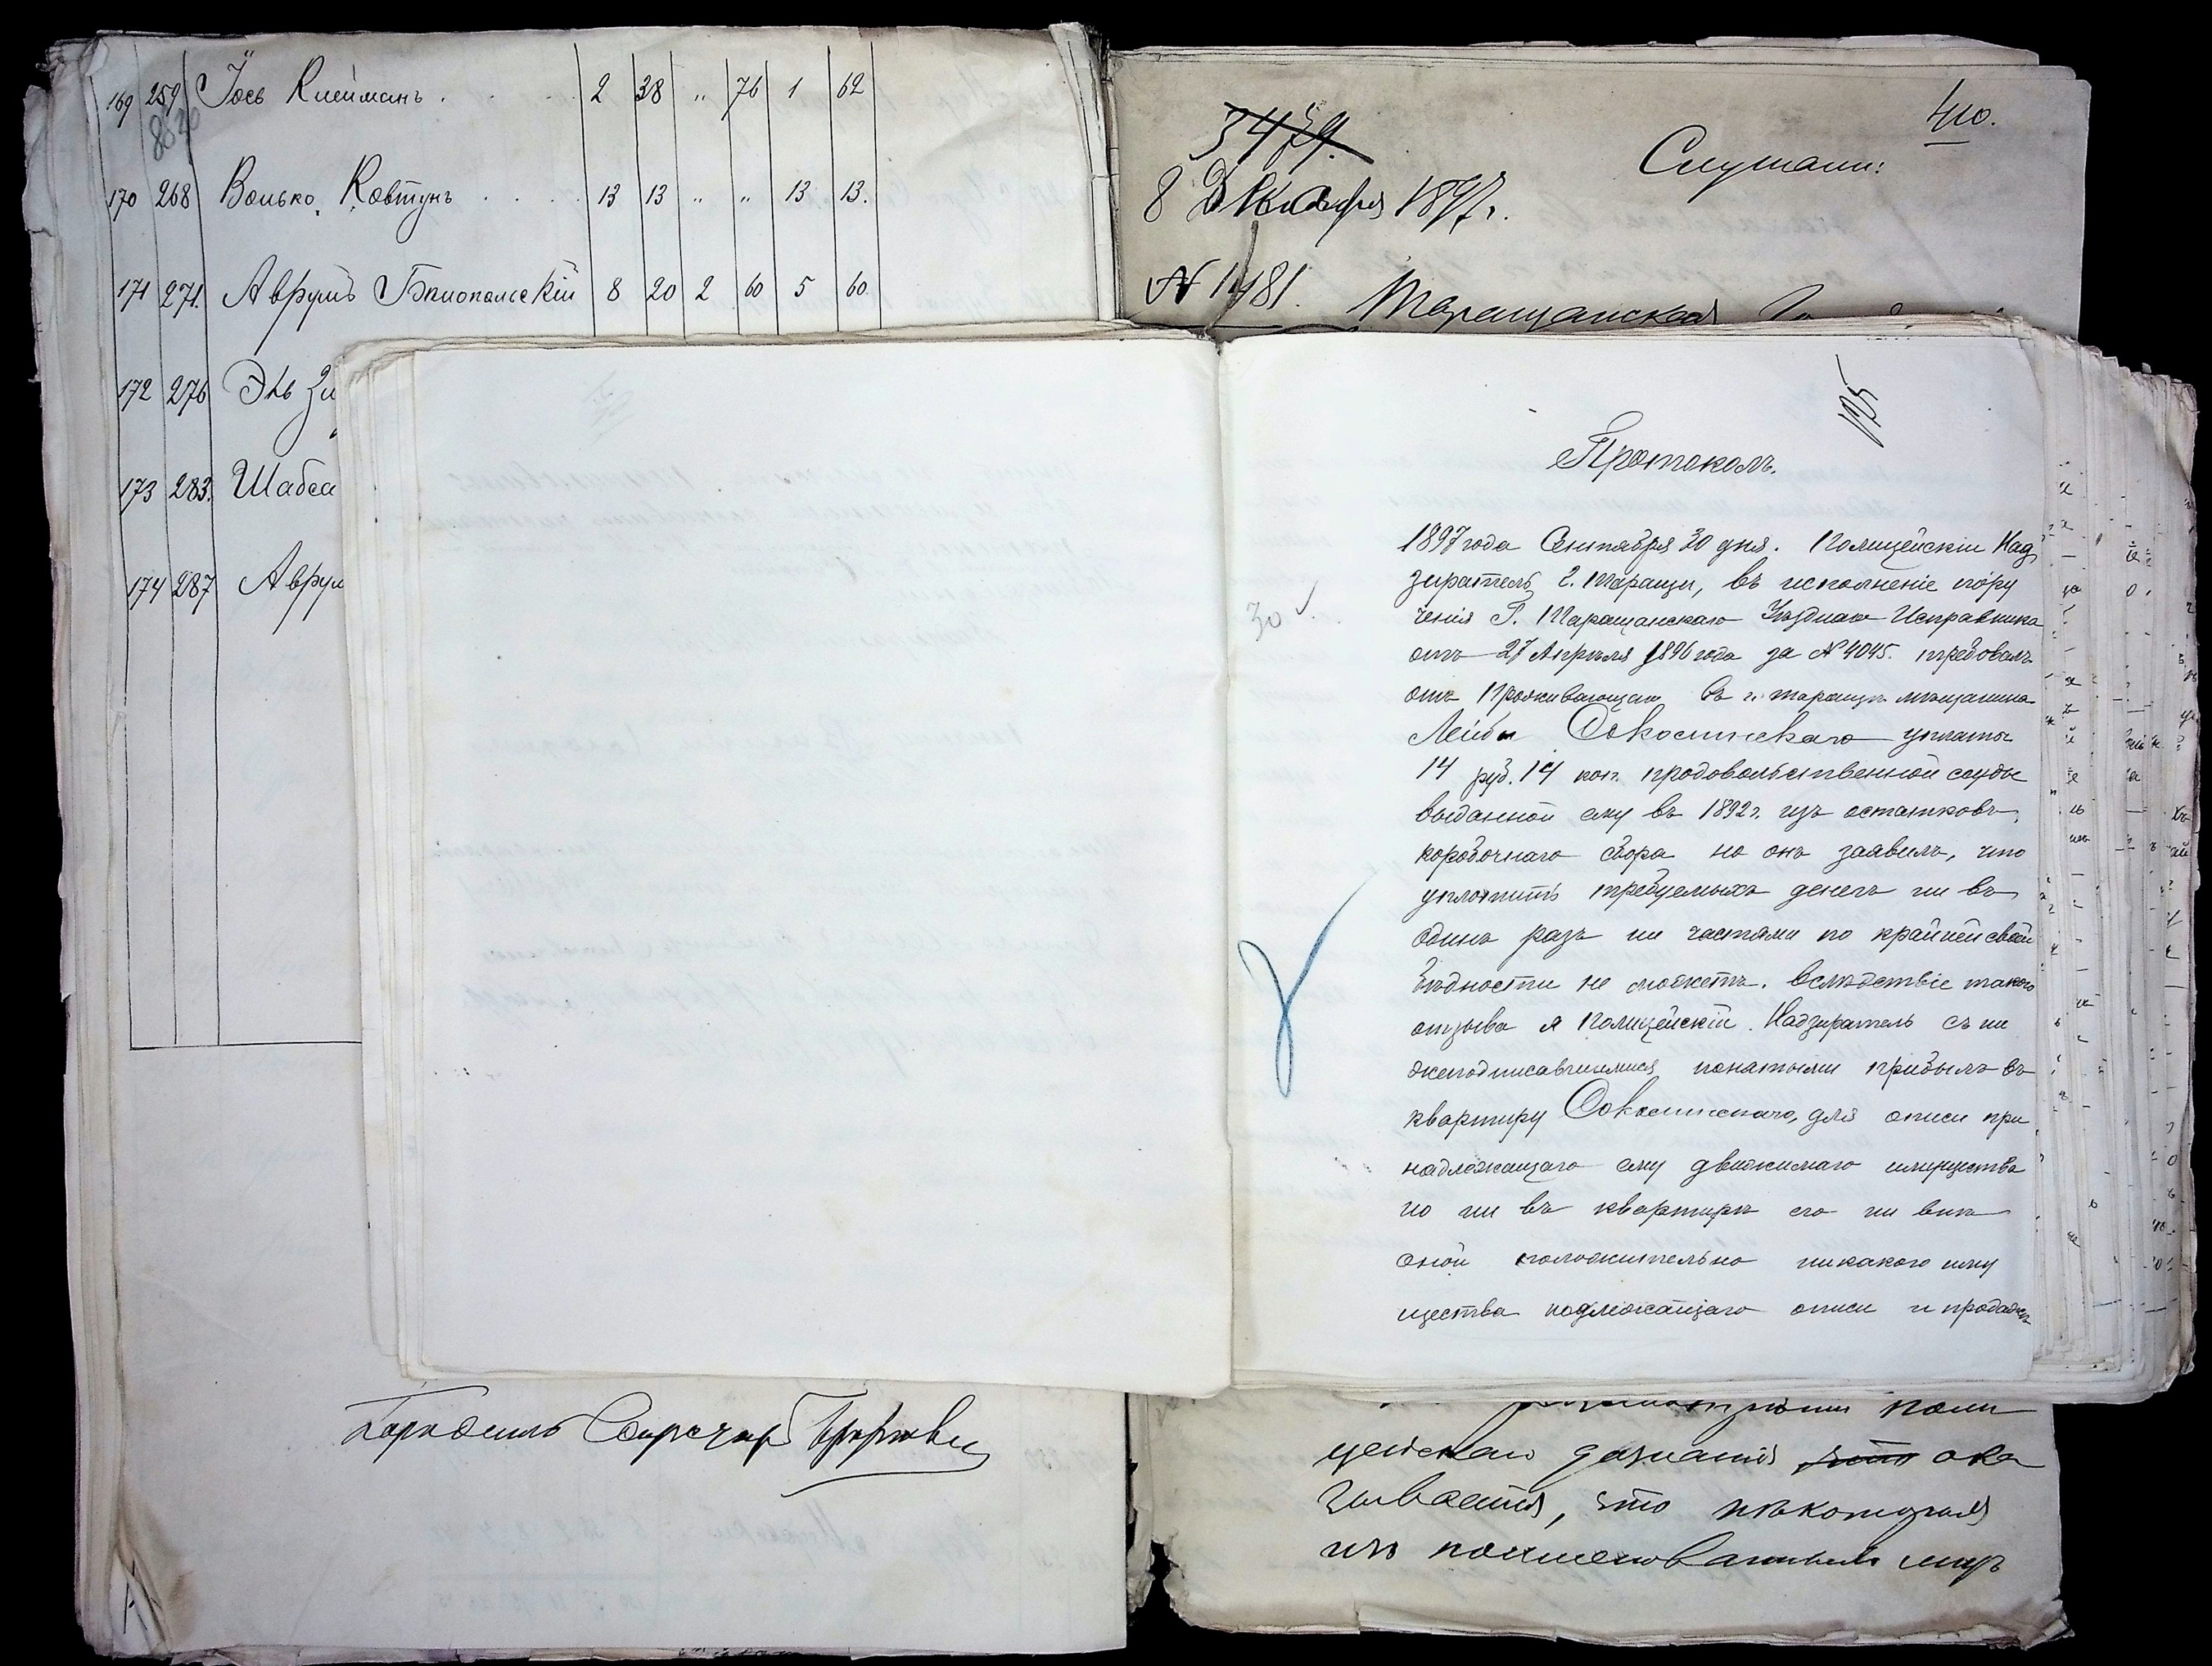 169 259 Іось Клейманъ . 2 38 " 76 1 62
8030
170 268 Волько Ковтунъ . . . . 13 13 " " 13 13.
171 271. Аврумъ Бялопольскій 8 20 2 60 5 60
172 276 Эль
173 283. Шабса
174 287 Аврум
410.
3479.
Слушали:
8 Декабря 1897 г.
№ 1481.
Таращанская
125
Протоколъ.
30
1897 года Сентября 30 дня. Полицейскій Над
зиратель г. Таращи, въ исполненіе пору
ченія Г. Таращанскаго Уѣзднаго Исправника
отъ 27 Апрѣля 1896 года за № 4045. требовалъ
отъ Проживающаго въ г. таращѣ мѣщанина
Лейбы уплаты
14 руб. 14 коп. продовольственной ссуды
выданной ему въ 1892 г. изъ остатковъ
коробочнаго сбора но онъ заявилъ, что
уплотить требуемыхъ денегъ ни въ
одинъ разъ ни частями по крайней своей
бѣдности не можетъ. вслѣдствіе такого
отзыва я Полицейскій Надзиратель съ ни
жеподписавшимися понятыми прибылъ въ
квартиру для описи при
надлежащаго ему движимаго имущества
но ни въ квартирѣ его ни внѣ
оной положительно никакого иму
щества подлежащаго описи и продажѣ
поли
цейскаго дознанія ока
зывается, что нѣкоторыя
изъ поименованныхъ лицъ